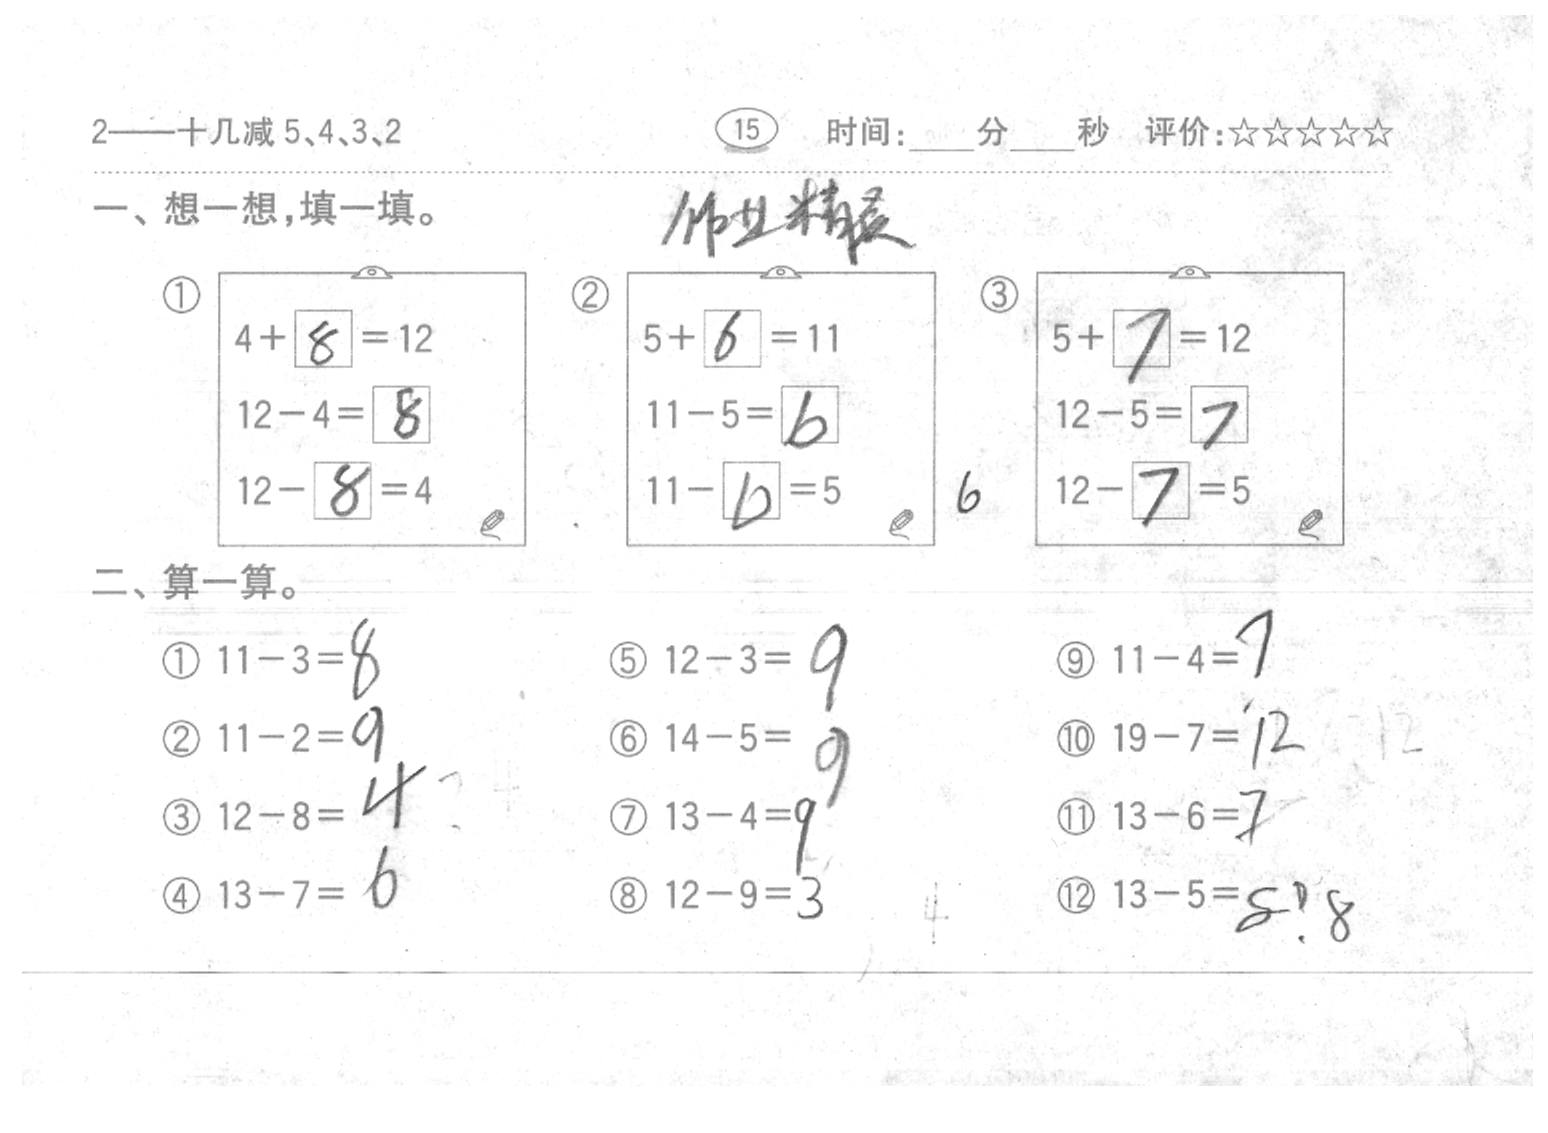 2——十几减 5、4、3、2 15 时间:____分____秒 评价:☆☆☆☆☆
一、想一想,填一填。
作业精灵
① ② ③
4+8=12 5+6=11 5+7=12
12-4=8 11-5=6 12-5=7
12-8=4 11-6=5 6 12-7=5
二、算一算。
① 11-3=8 ⑤ 12-3=9 ⑨ 11-4=7
② 11-2=9 ⑥ 14-5=9 ⑩ 19-7=12 12
③ 12-8=4 ? 4 ⑦ 13-4=9 ⑪ 13-6=7
④ 13-7=6 ⑧ 12-9=3 4 ⑫ 13-5=8?8